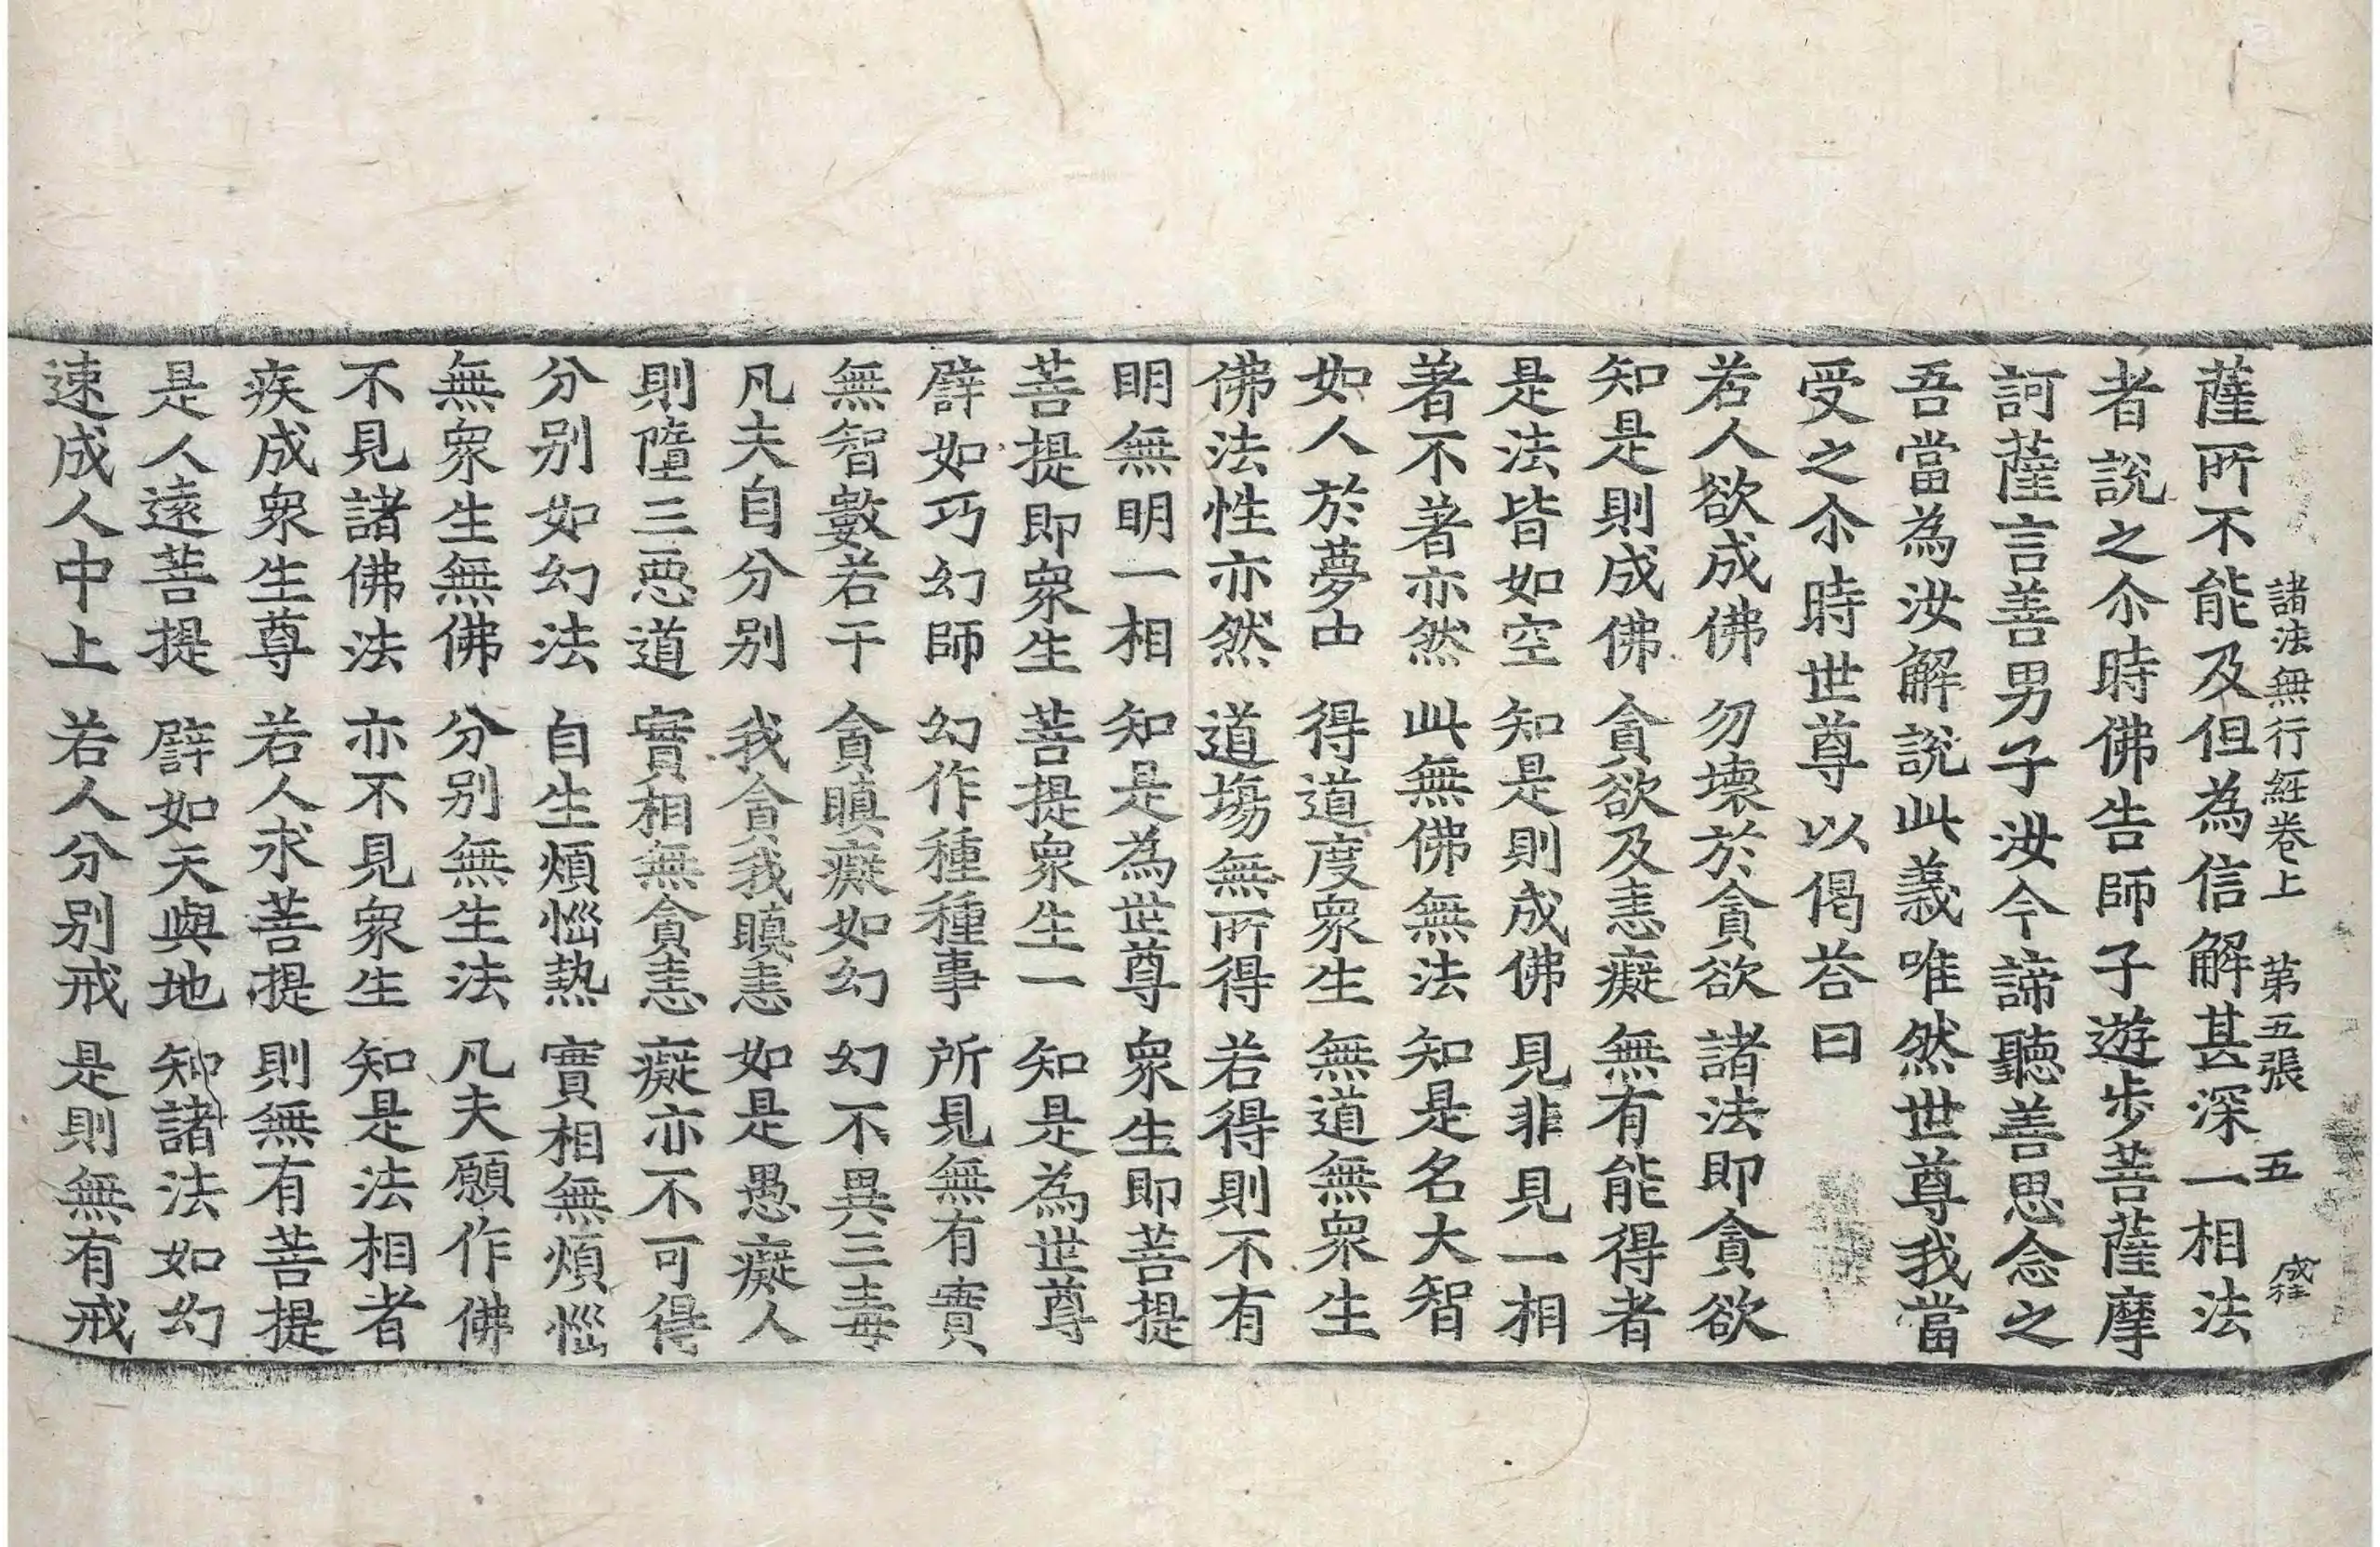 諸法無行経卷上 第五張 五
薩所不能及但為信解甚深一相法
者說之尒時佛告師子遊步菩薩摩
訶薩言善男子汝今諦聽善思念之
吾當為汝解說此義唯然世尊我當
受之尒時世尊以偈荅曰
若人欲成佛 勿壞於貪欲 諸法即貪欲
知是則成佛 貪欲及恚癡 無有能得者
是法皆如空 知是則成佛 見非見一相
著不著亦然 此無佛無法 知是名大智
如人於夢中 得道度衆生 無道無衆生
佛法性亦然 道場無所得 若得則不有
明無明一相 知是為世尊 衆生即菩提
菩提即衆生 菩提衆生一 知是為世尊
譬如巧幻師 幻作種種事 所見無有實
無智數若干 貪瞋癡如幻 幻不異三毒
凡夫自分別 我貪我瞋恚 如是愚癡人
則墮三惡道 實相無貪恚 癡亦不可得
分別如幻法 自生煩惱熱 實相無煩惱
無衆生無佛 分別無生法 凡夫願作佛
不見諸佛法 亦不見衆生 知是法相者
疾成衆生尊 若人求菩提 則無有菩提
是人遠菩提 譬如天與地 知諸法如幻
速成人中上 若人分別戒 是則無有戒